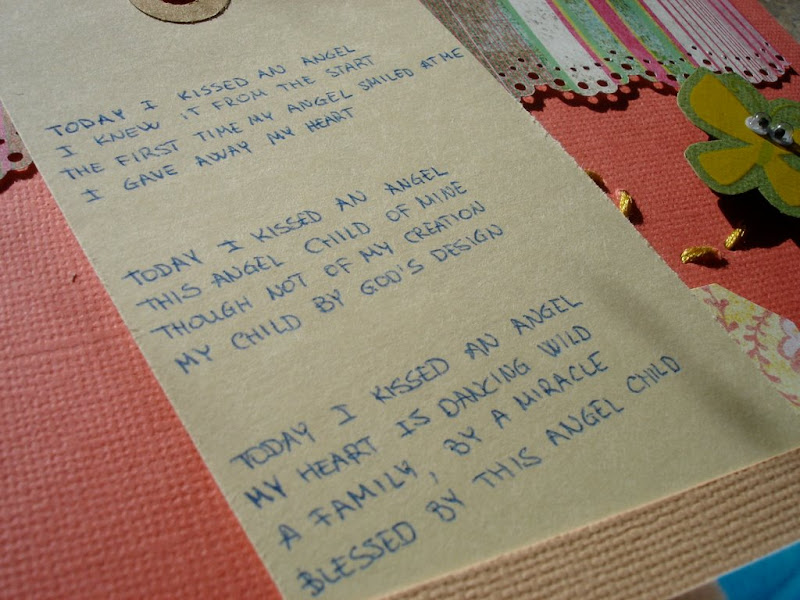 TODAY I KISSED AN ANGEL
I KNEW IT FROM THE START
THE FIRST TIME MY ANGEL SMILED AT ME
I GAVE AWAY MY HEART
TODAY I KISSED AN ANGEL
THIS ANGEL CHILD OF MINE
THOUGH NOT OF MY CREATION
MY CHILD BY GOD'S DESIGN
TODAY I KISSED AN ANGEL
MY HEART IS DANCING WILD
A FAMILY, BY A MIRACLE
BLESSED BY THIS ANGEL CHILD